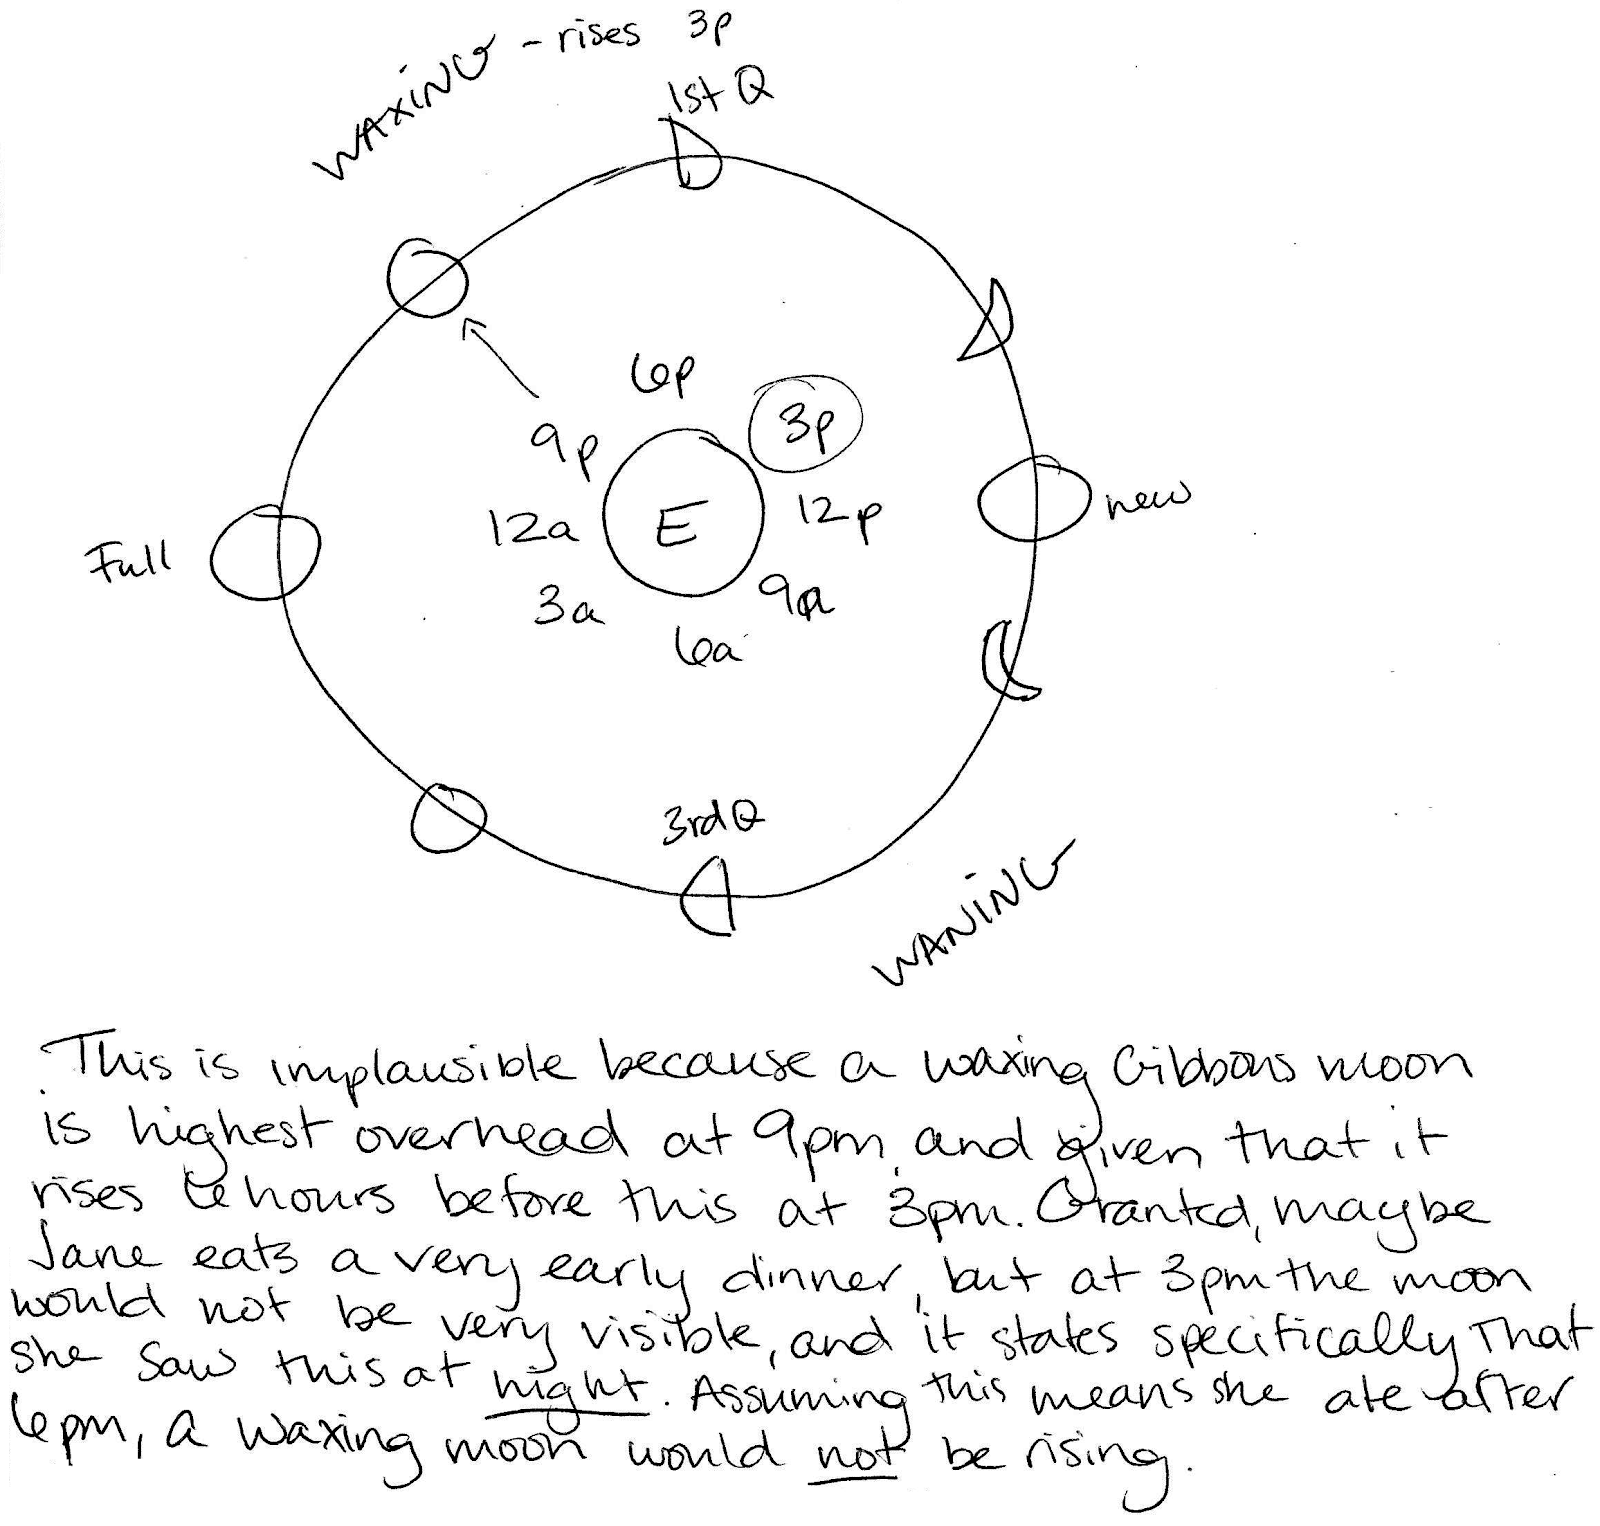 WAXING - rises 3p
1st Q
6p
3p
9p
12a
E
12p
new
Full
3a
9a
6a
3rd Q
WANING
This is implausible because a waxing Gibbous moon
is highest overhead at 9pm, and given that it
rises 6 hours before this at 3pm. Granted, maybe
Jane eats a very early dinner, but at 3pm the moon
would not be very visible, and it states specifically that
she saw this at night. Assuming this means she ate after
6pm, a waxing moon would not be rising.